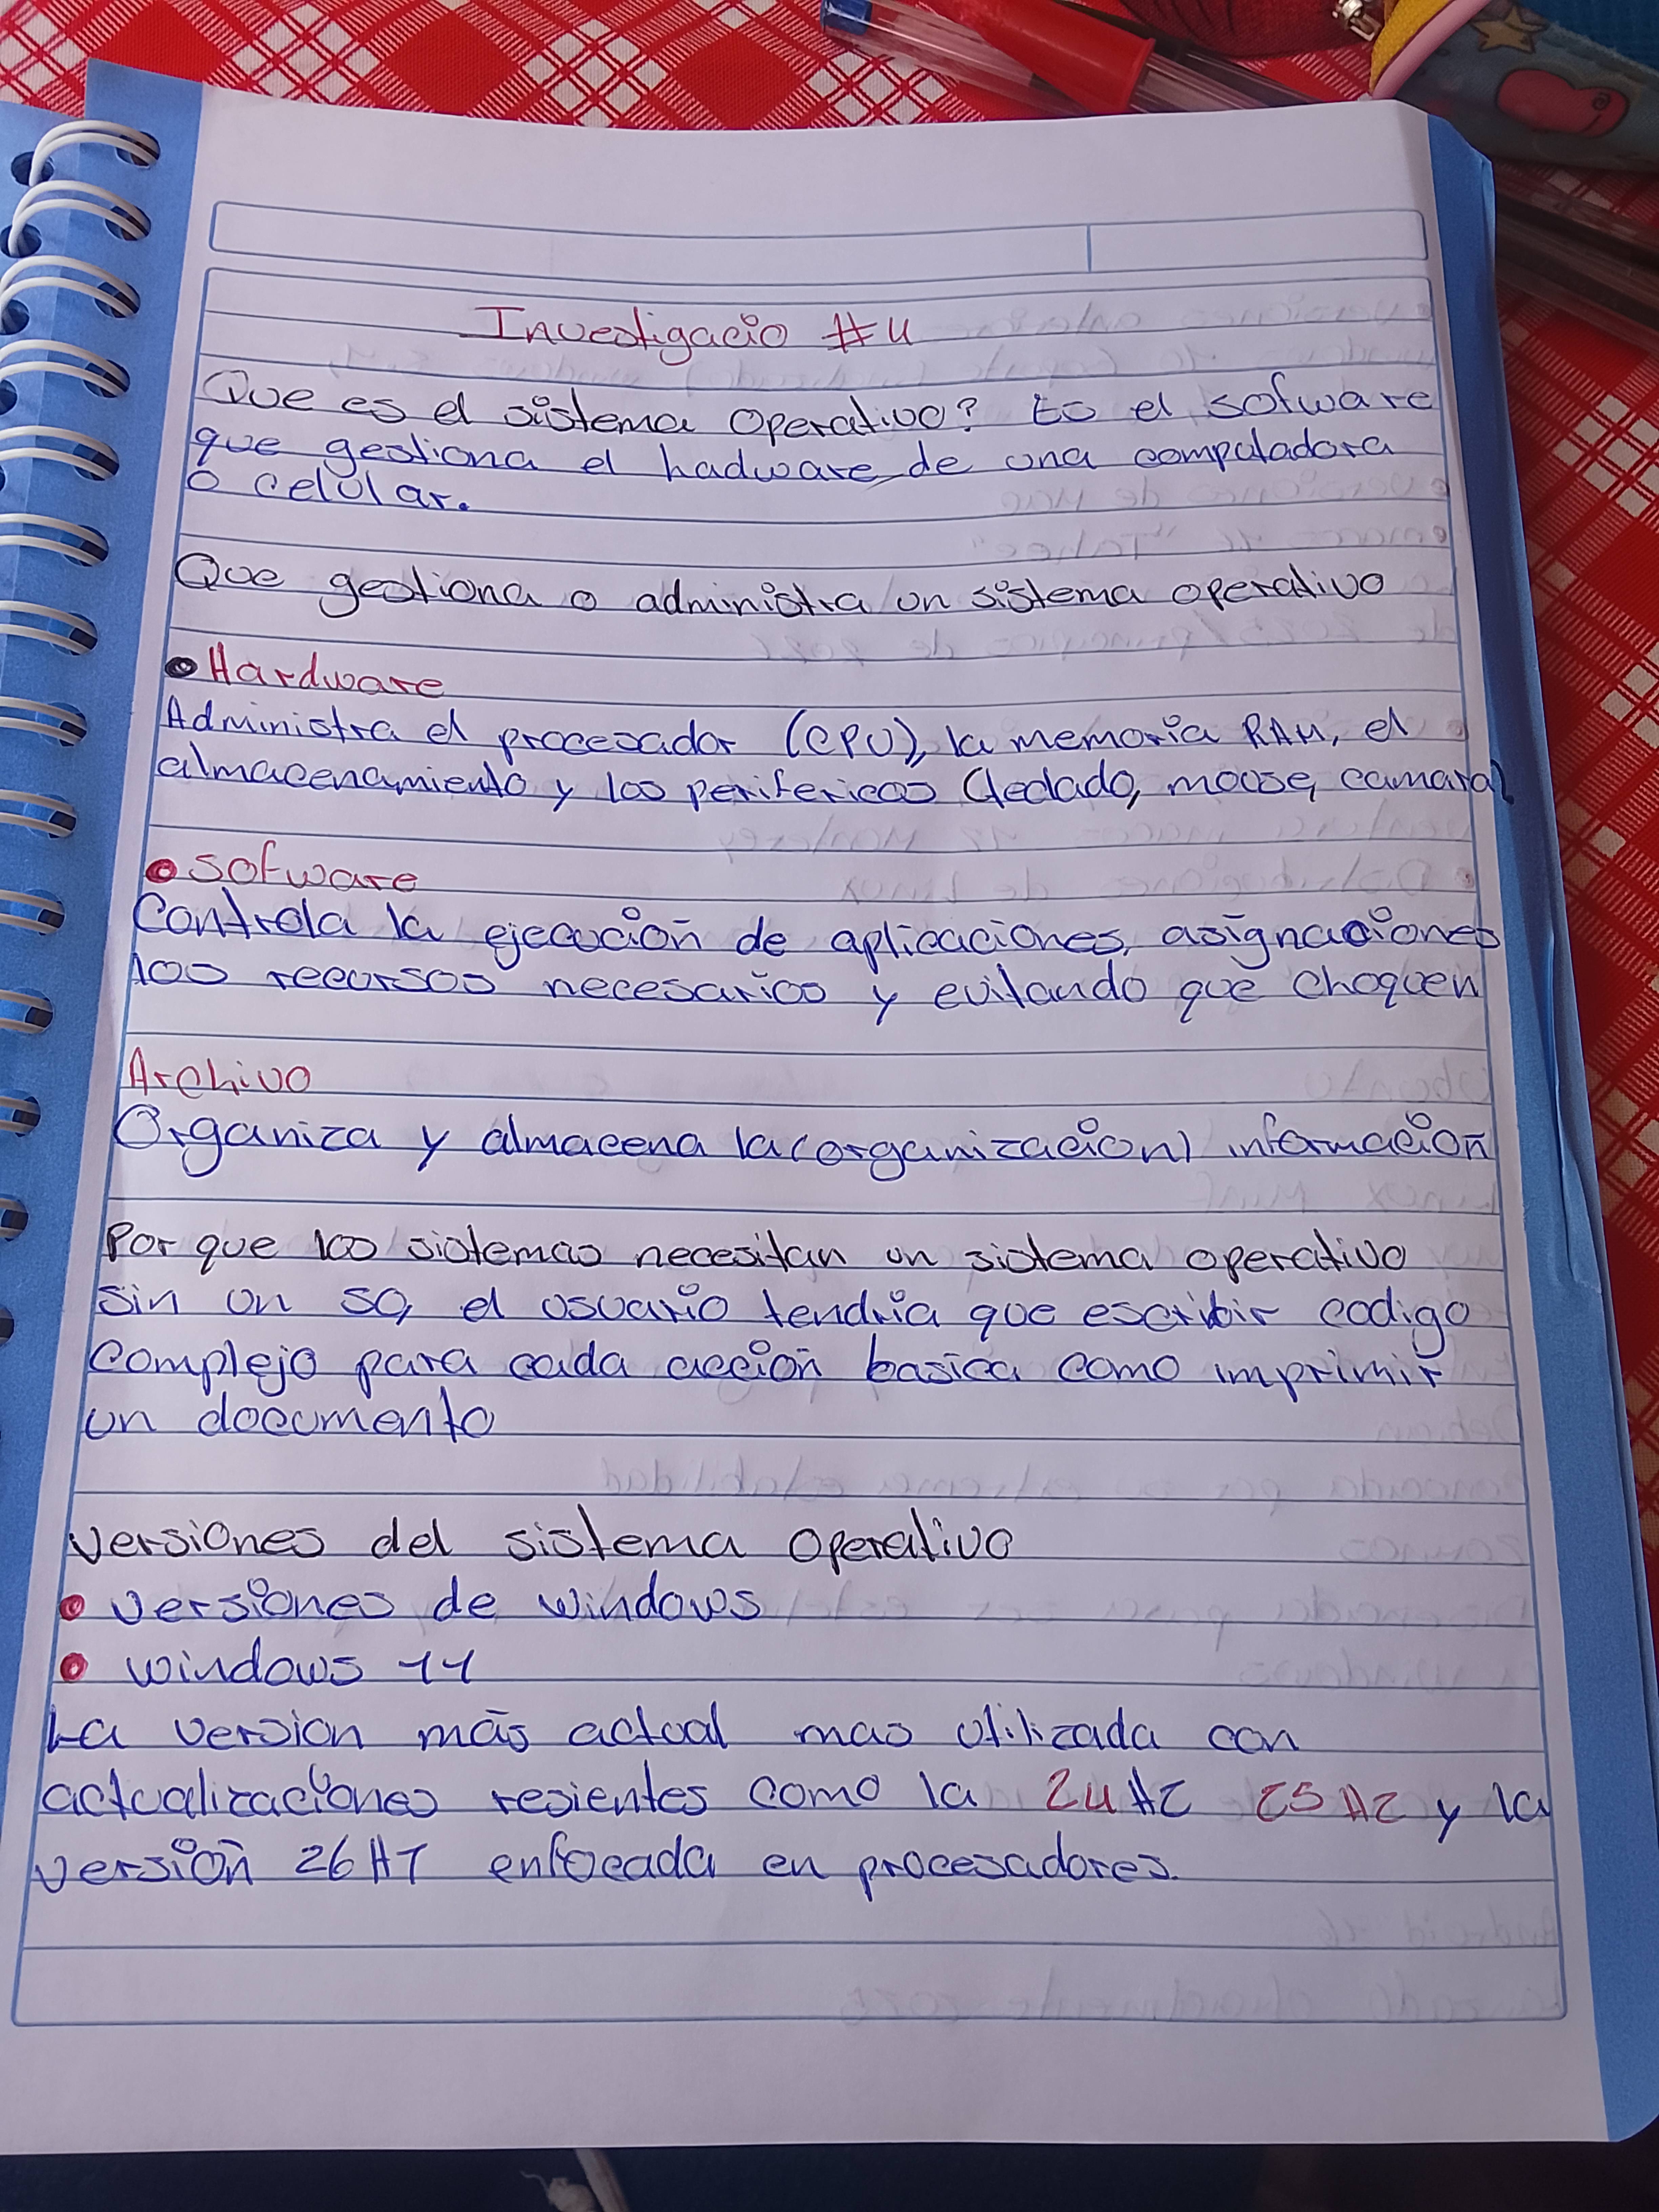 Investigacio #4
Que es el sistema operativo? Es el sofware
que gestiona el hadware de una computadora
o celular.
Que gestiona o administra un sistema operativo
• Hardware
Administra el procesador (CPU), la memoria RAM, el
almacenamiento y los perifericos (teclado, mouse, camara)
• Sofware
Controla la ejecución de aplicaciones, asignaciones
los recursos necesarios y evitando que choquen
Archivo
Organiza y almacena la (organización) información
Por que los sistemas necesitan un sistema operativo
Sin un SO, el usuario tendría que escribir codigo
complejo para cada acción basica como imprimir
un documento
Versiones del sistema operativo
• Versiones de windows
• Windows 11
La version más actual mas utilizada con
actualizaciones resientes como la 24H2 25H2 y la
versión 26H1 enfocada en procesadores.